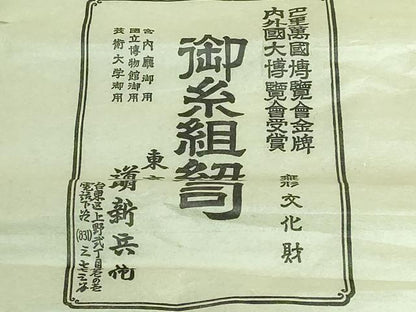 巴里萬國博覽會金牌
内外國大博覽會受賞
文化財
御糸組紐司
東
新兵衛
宮内廳御用
國立博物館御用
技術大学御用
台東区上野弐丁目
電話下谷(831)三七七三番